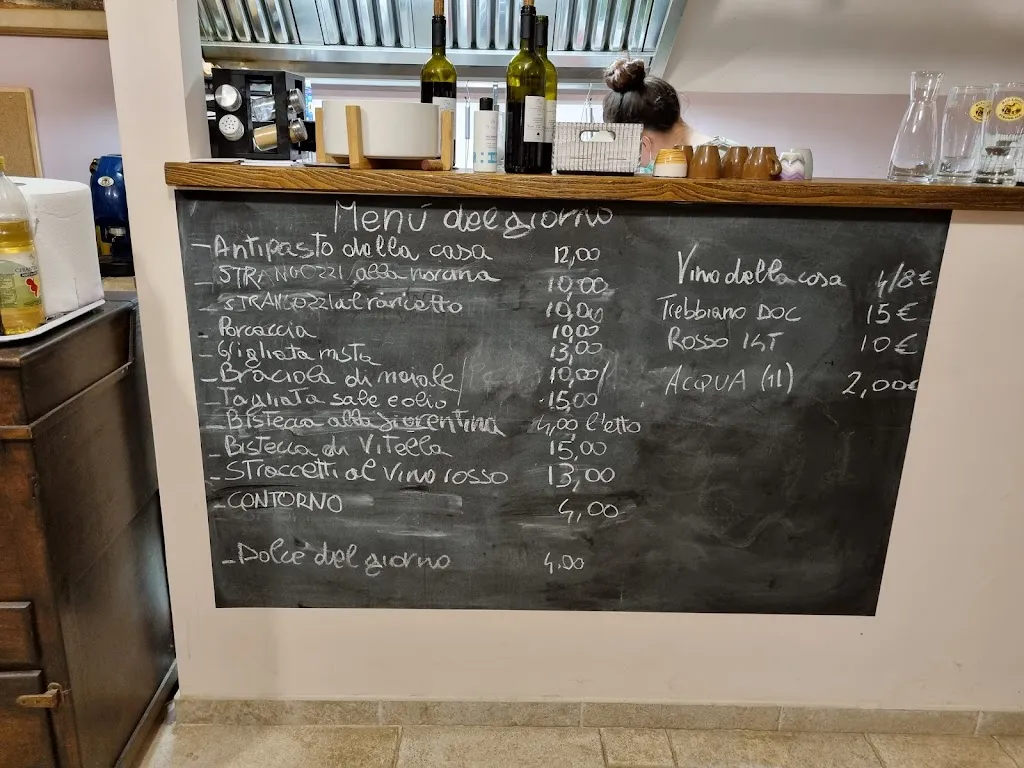 Menú del giorno
- Antipasto della casa 12,00
- STRANGOZZI alla norcina 10,00
- STRANGOZZI al rancetto 10,00
- Porcaccia 10,00
- Grigliata mista 13,00
- Braciola di maiale 10,00
- Tagliata sale e olio 15,00
- Bistecca alla fiorentina 4,00 l'etto
- Bistecca di Vitella 15,00
- Straccetti al vino rosso 13,00
- CONTORNO 4,00
- Dolce del giorno 4,00
Vino della casa 4/8€
Trebbiano DOC 15€
Rosso IGT 10€
ACQUA (1l) 2,00€